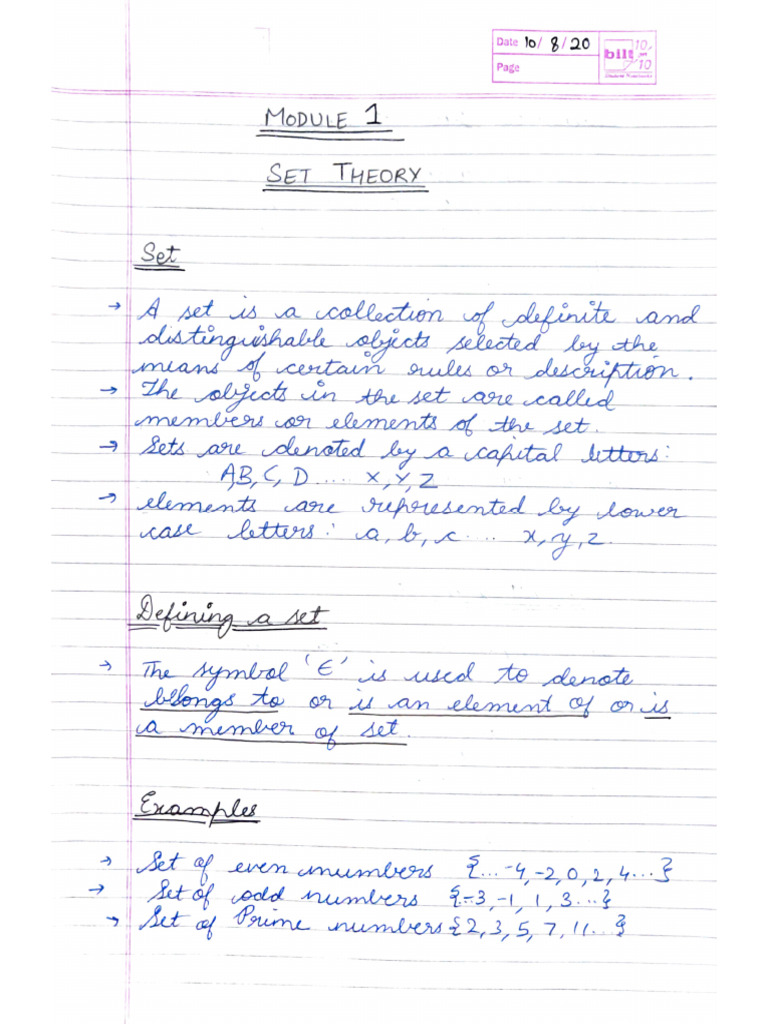 Date 10/ 8/20
Page
bilt
10
on
10
MODULE 1
SET THEORY
Set
→ A set is a collection of definite and
distinguishable objects selected by the
means of certain rules or description.
→ The objects in the set are called
members or elements of the set.
→ Sets are denoted by a capital letters:
A,B,C, D..... X,Y,Z
→ elements are represented by lower
case letters: a, b, c.... x, y, z.
Defining a set
→ The symbol '∈' is used to denote
belongs to or is an element of or is
a member of set.
Examples
→ Set of even numbers {...-4,-2,0,2,4...}
→ Set of odd numbers {-3,-1, 1, 3...}
→ Set of Prime numbers {2,3,5,7,11...}